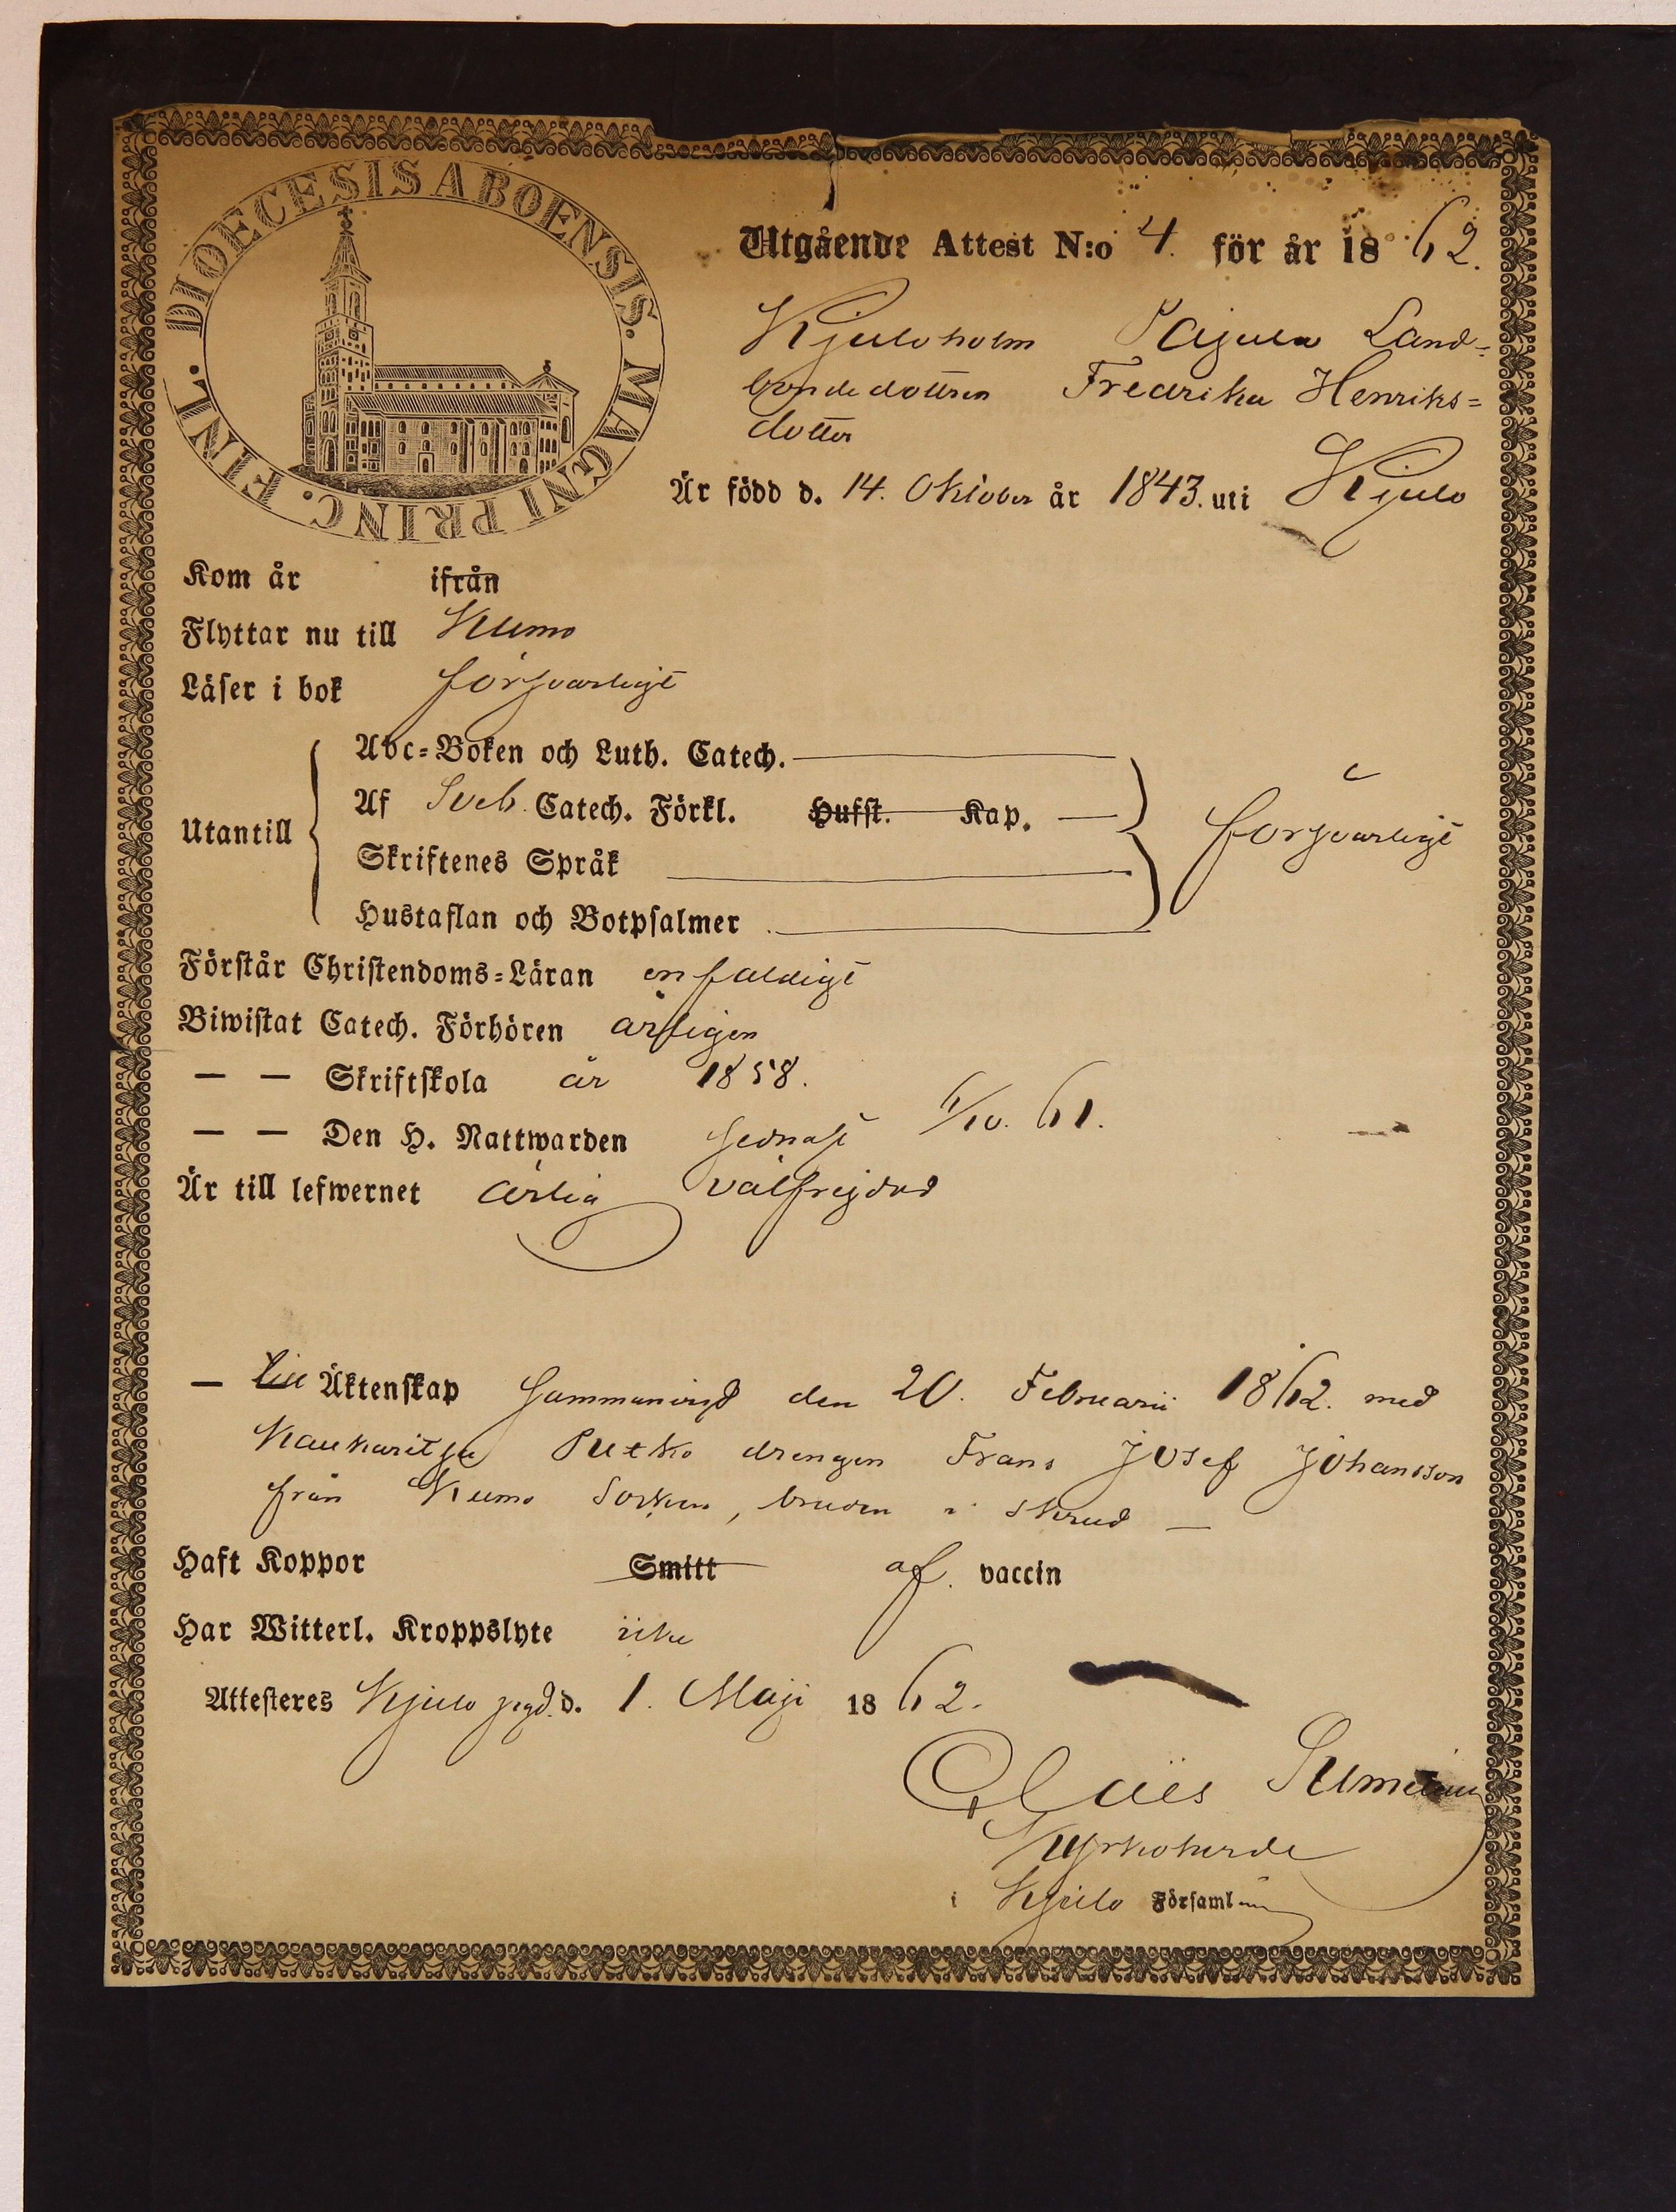 DIOECESIS ABOENSIS. MAGNI PRINC. FINL.
Utgående Attest N:o 4. för år 1862.
Kjuloholm Pajula Land=
bondedottren Fredrika Henriks=
dotter
Är född d. 14. Oktober år 1843. uti Kjulo
Kom år ifrån
Flyttar nu till Kumo
Läser i bok försvarligt
Utantill
Abc=Boken och Luth. Catech.
Af Sveb. Catech. Förkl. Hufst. Kap.
försvarligt
Skriftenes Språk
Hustaflan och Botpsalmer
Förstår Christendoms=Läran enfaldigt
Biwistat Catech. Förhören årligen
— — Skriftskola år 1858.
— — Den H. Nattwarden sednast 6/10. 61.
Är till lefwernet ärlig välfrejdad
— till Äktenskap sammanvigd den 20. Februarii 1862. med
Kaukaritsa Putko drengen Frans Josef Johansson
från Kumo Socken, bruden i skrud —
Haft Koppor Smitt af vaccin
Har Witterl. Kroppslyte icke
Attesteres Kjulo pgd. d. 1. Maji 1862.
Claës
Kyrkoherde
i Kjulo Församling